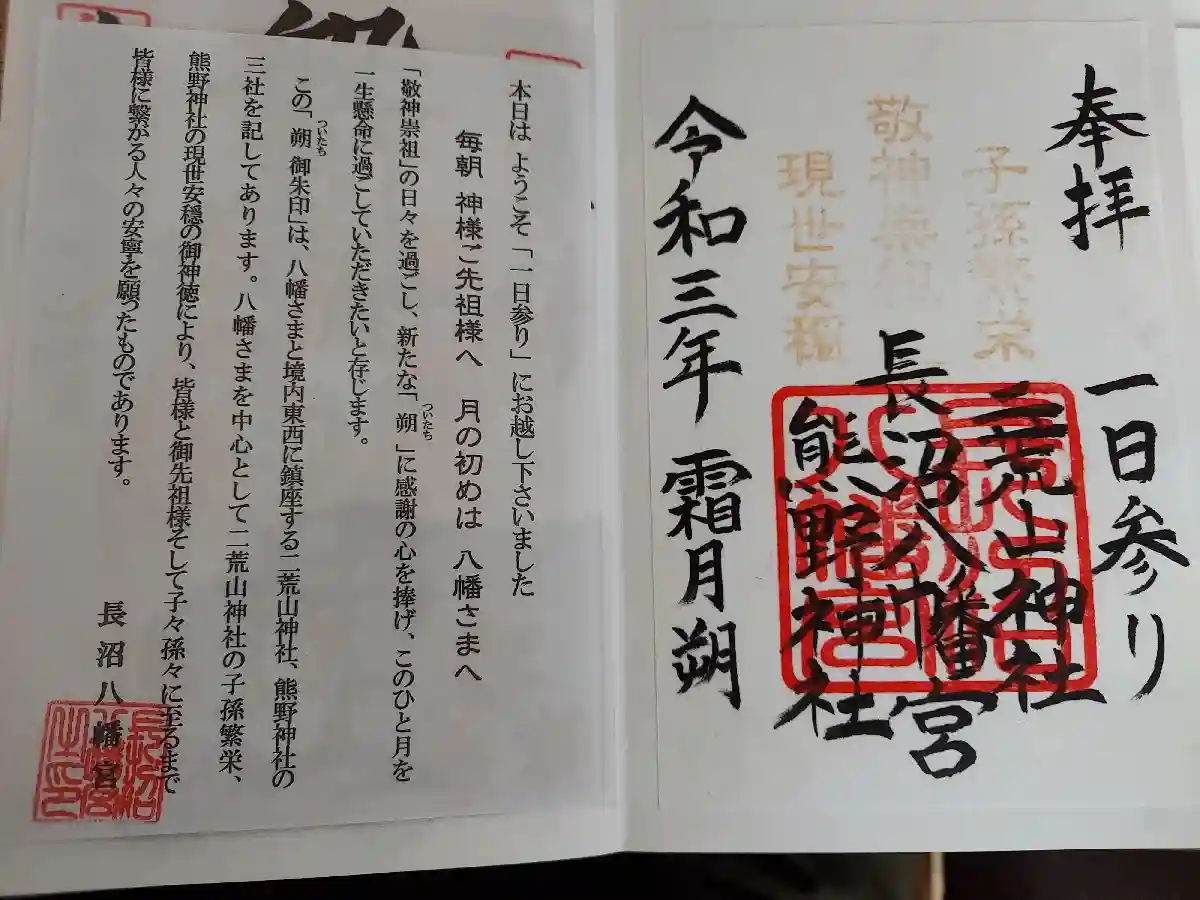 奉拝
一日参り
子孫繁栄
二荒山神社
敬神崇祖
長沼八幡宮
現世安穏
熊野神社
令和三年 霜月 朔
本日は ようこそ「一日参り」にお越し下さいました
毎朝 神様ご先祖様へ 月の初めは 八幡さまへ
「敬神崇祖」の日々を過ごし、新たな「朔
ついたち
」に感謝の心を捧げ、このひと月を
一生懸命に過ごしていただきたいと存じます。
この「朔
ついたち
御朱印」は、八幡さまと境内東西に鎮座する二荒山神社、熊野神社の
三社を記してあります。八幡さまを中心として二荒山神社の子孫繁栄、
熊野神社の現世安穏の御神徳により、皆様と御先祖様そして子々孫々に至るまで
皆様に繋がる人々の安寧を願ったものであります。
長沼八幡宮